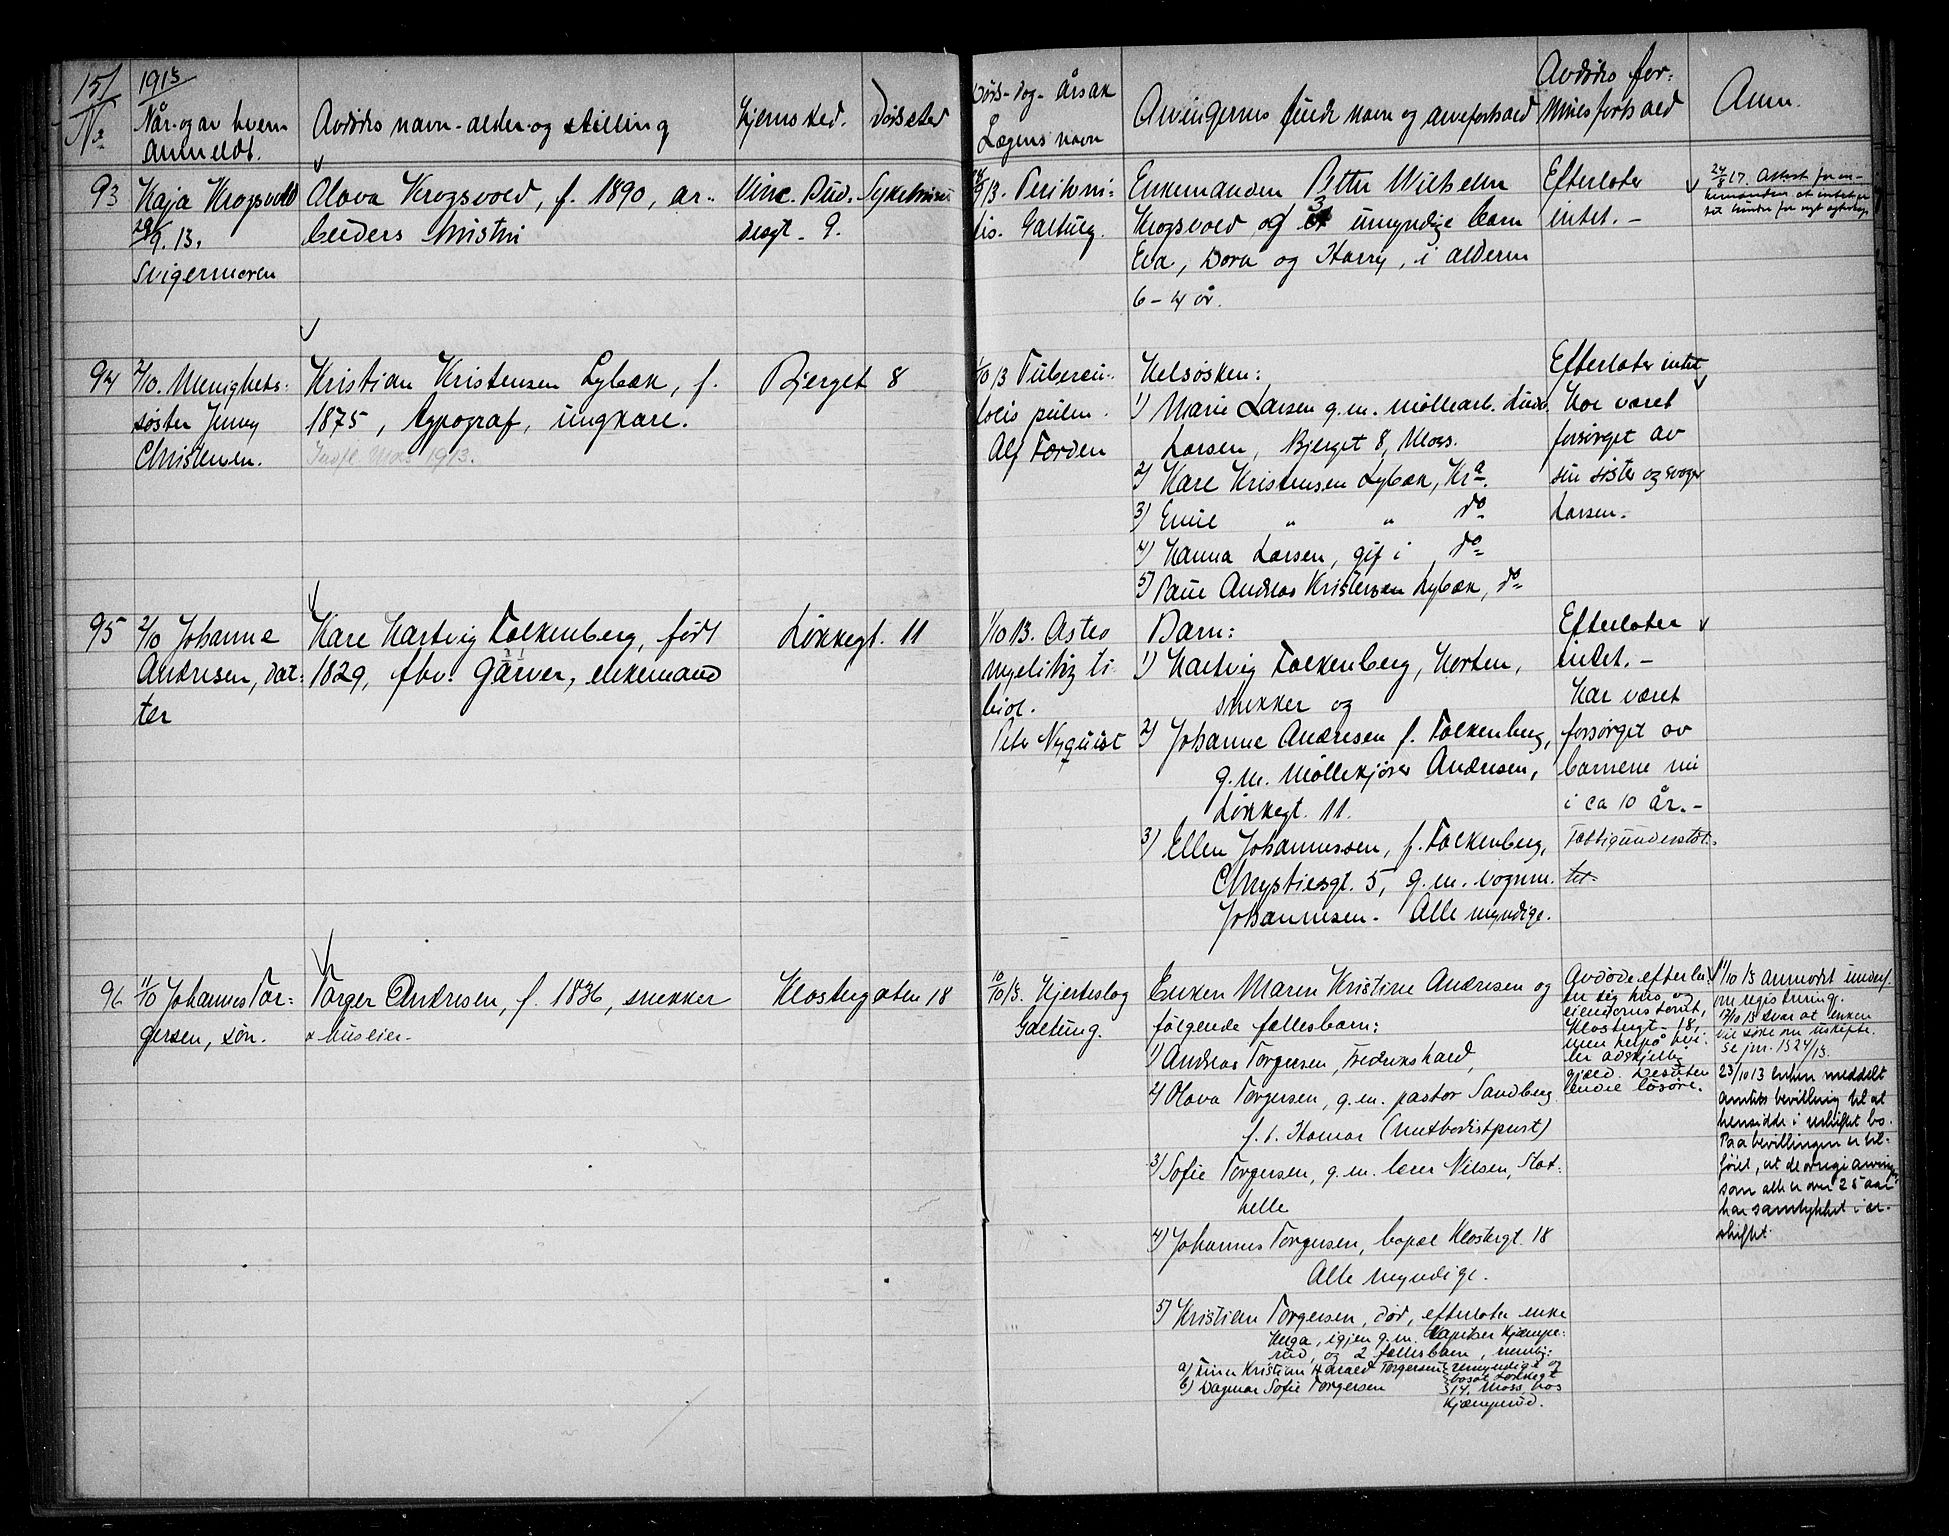 151
1913
No
Når og av hvem
anmeldt.
Avdødes navn - alder og stilling
Hjemsted.
Dødssted
Døds-dag- årsak
Lægens navn
Arvingernes fulde navn og arveforhold
Avdødes for-
muesforhold
Anm.
93
Kaja Krogsvold
29/9. 13.
Svigermoren
Olava Krogsvold, f. 1890, ar-
beiders hustru
Vinc. Bud-
desgt. 9.
Sykehuset
9/13. Peritoni-
tis. Galtung.
Enkemanden Petter Wilhelm
Krogsvold og 3 umyndige barn
Eva, Dora og Harry, i alderen
6-4 år.
Efterlater
intet. -
24/8 17. Attest for en-
kemanden at intet er
til hinder for nyt egteskap
94
2/10. Menighets-
søster Jenny
Christensen.
Kristian Kristensen Lybæk, f.
1875, typograf, ungkarl.
Indfl. Moss 1913.
Bjerget 8
1/10 13 Tubercu-
losis pulm.
Alf Forden
Helsøsken:
1) Marie Larsen g.m. møllearb. Ludv.
Larsen, Bjerget 8, Moss.
2) Karl Kristensen Lybæk, Kra.
3) Emil " " do
4) Hanna Larsen, gift i do
5) Paul Andreas Kristensen Lybæk, do
Efterlater intet
Har været
forsørget av
sin søster og svoger
Larsen.
95
2/10 Johanne
Andresen, dat-
ter
Karl Hartvig Falkenberg, født
1829, fhv. garver, enkemand
Løkkegt. 11
1/10 13. Osteo
myelitis ti-
biae.
Petr Nyquist
Barn:
1) Hartvig Falkenberg, Horten,
snekker og
2) Johanne Andresen f. Falkenberg,
g.m. møllekjører Andresen,
Løkkegt. 11.
3) Ellen Johannessen, f. Falkenberg,
Chrystiesgt. 5, g.m. vognm.
Johannesen. Alle myndige.
Efterlater
intet. -
Har været
forsørget av
barnene nu
i ca 10 år. -
Fattigunderstøt-
tet
96
11/10 Johannes Tor-
gersen, søn.
Torger Andresen, f. 1836, snekker
& huseier.
Klostergaten 18
10/10 13. Hjerteslag
Galtung.
Enken Maren Kristine Andresen og
følgende fællesbarn:
1) Andreas Torgersen, Fredrikshald,
2) Olava Torgersen, g.m. pastor Sandberg
f.t. Hamar (methodistprest)
3) Sofie Torgersen, g.m. lærer Nilsen, Stat-
helle
4) Johannes Torgersen, bopæl Klostergt. 18
Alle myndige.
5) Kristian Torgersen, død, efterlater enke
Helga, igjen g.m. Kjæmpe-
rud, og 2 fællesbarn, nemlig:
a) Finn Kristian Harald Torgersen umyndige og
b) Dagmar Sofie Torgersen bosat Løkkegt
14, Moss, hos
Kjæmperud.
Avdøde efterla-
ter sig hus og
eiendomstomt,
Klostergt. 18,
men herpå hvi-
ler adskjellig
gjæld. Desuten
endel løsøre.
11/10 13 anmodet underf.
om registrering.
17/10 13 svar at enken
vil søke om uskifte.
Se jnr. 1524/13.
23/10 13 enken meddelt
amtets bevilling til at
hensidde i uskiftet bo.
Paa bevillingen er til-
føiet, at de øvrige arvinger
som alle er over 25 aar
har samtykket i u-
skiftet.